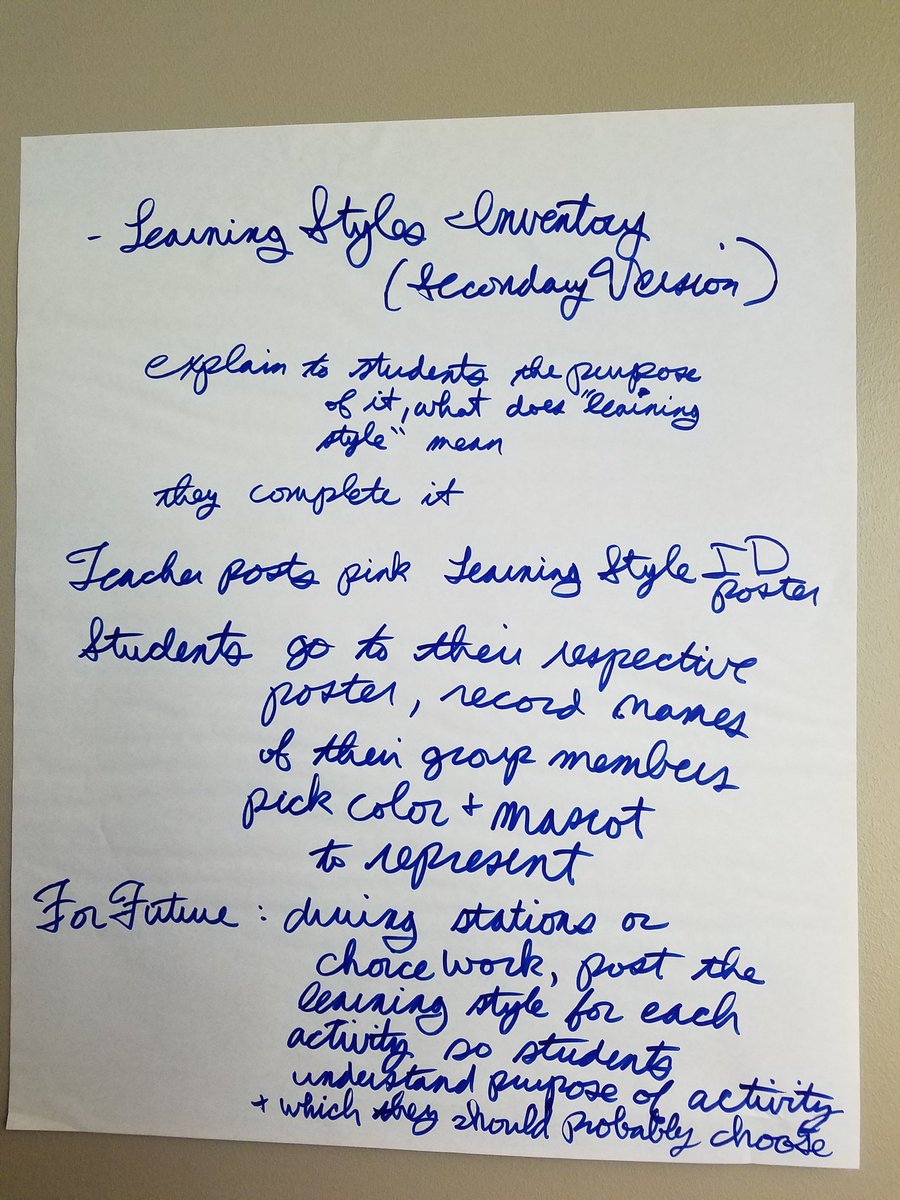 - Learning Styles Inventory
(Secondary Version)
explain to students the purpose
of it, what does "learning
style" mean
they complete it
Teacher posts pink Learning Style ID
poster
Students go to their respective
poster, record names
of their group members
pick color + mascot
to represent
For Future: during stations or
choice work, post the
learning style for each
activity so students
understand purpose of activity
+ which they should probably choose